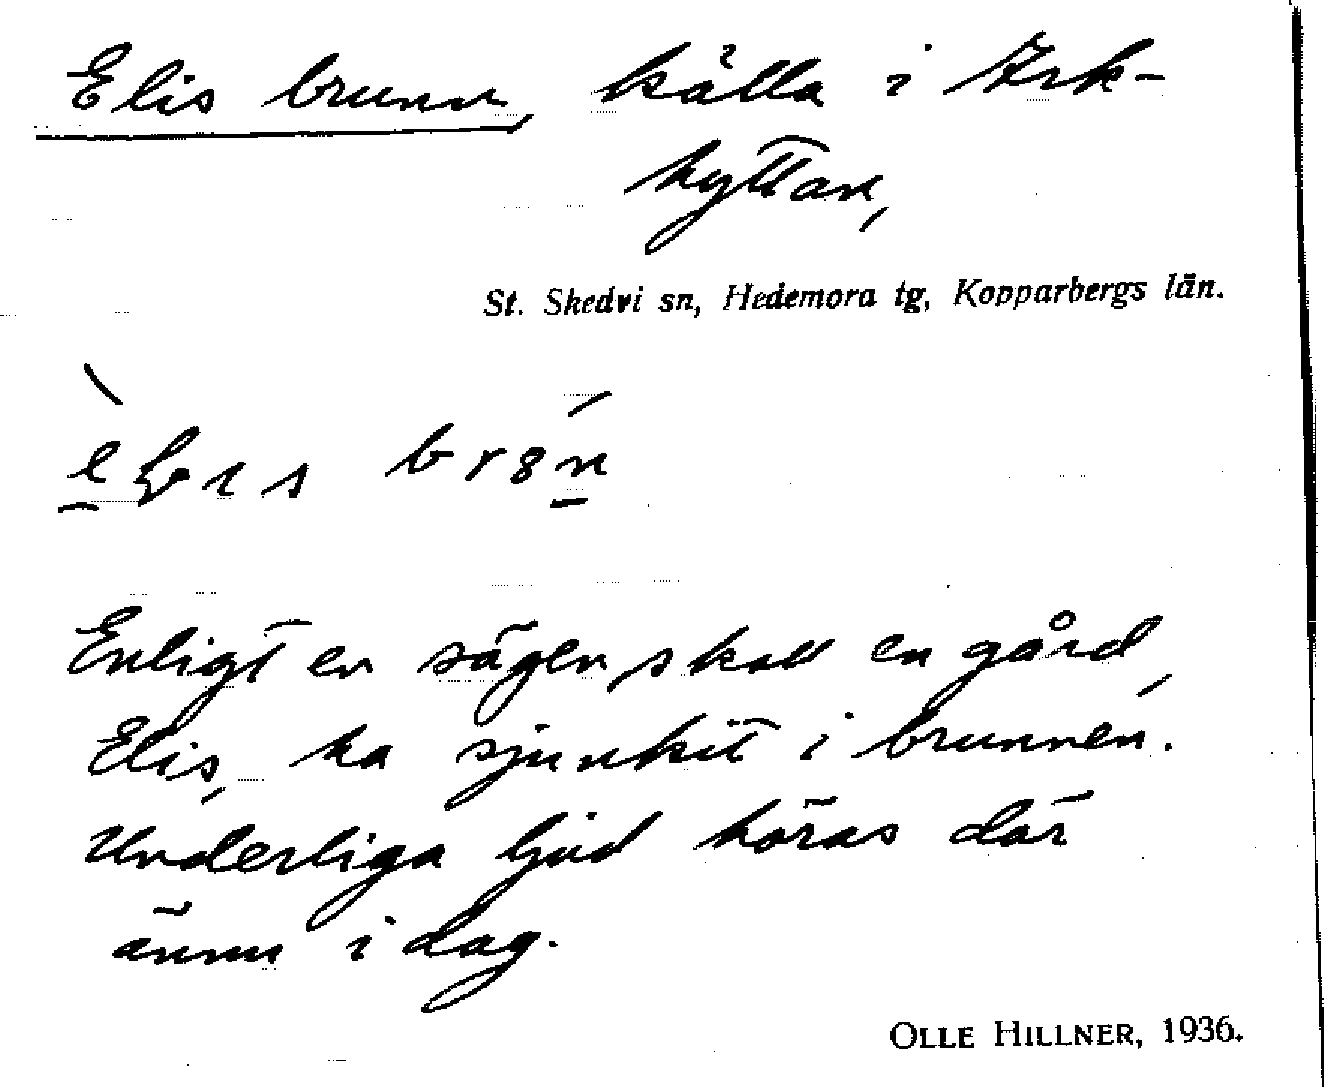 Elis brunn, källa i Yrk-
hyttan,
St. Skedvi sn, Hedemora tg, Kopparbergs län.
Enligt en sägen, skall en gård,
Elis, ha sjunkit i brunnen.
Underliga ljud höras där
ännu i dag.
OLLE HILLNER, 1936.